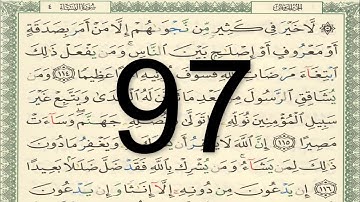 سُورَةُ النِّسَاءِ ٤
لَّا خَيْرَ فِي كَثِيرٍ مِّن نَّجْوَىٰهُمْ إِلَّا مَنْ أَمَرَ بِصَدَقَةٍ
أَوْ مَعْرُوفٍ أَوْ إِصْلَٰحٍۭ بَيْنَ ٱلنَّاسِ وَمَن يَفْعَلْ ذَٰلِكَ
ٱبْتِغَآءَ مَرْضَاتِ ٱللَّهِ فَسَوْفَ نُؤْتِيهِ عَظِيمًا ١١٤ وَمَن
يُشَاقِقِ ٱلرَّسُولَ مِنۢ بَعْدِ مَا لَهُ ٱلْهُدَىٰ وَيَتَّبِعْ غَيْرَ
97
سَبِيلِ ٱلْمُؤْمِنِينَ نُوَلِّهِۦ مَا تَوَلَّىٰ جَهَنَّمَ وَسَآءَتْ
مَصِيرًا ١١٥ إِنَّ ٱللَّهَ لَا يَغْفِرُ أَن بِهِۦ وَيَغْفِرُ مَا دُونَ
ذَٰلِكَ لِمَن يَشَآءُ وَمَن يُشْرِكْ بِٱللَّهِ فَقَدْ ضَلَّ ضَلَٰلًۢا بَعِيدًا
١١٦ إِن يَدْعُونَ مِن دُونِهِۦٓ إِلَّآ إِنَٰثًا وَإِن يَدْعُونَ